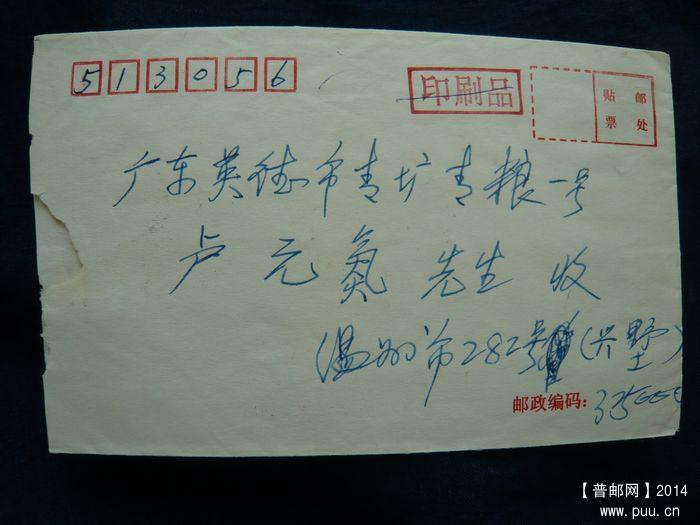 513056
印刷品
贴邮
票处
广东英德市青圹青粮一号
卢元氮先生收
温州市282号(兴墅)
邮政编码:325000
【普邮网】2014
www.puu.cn